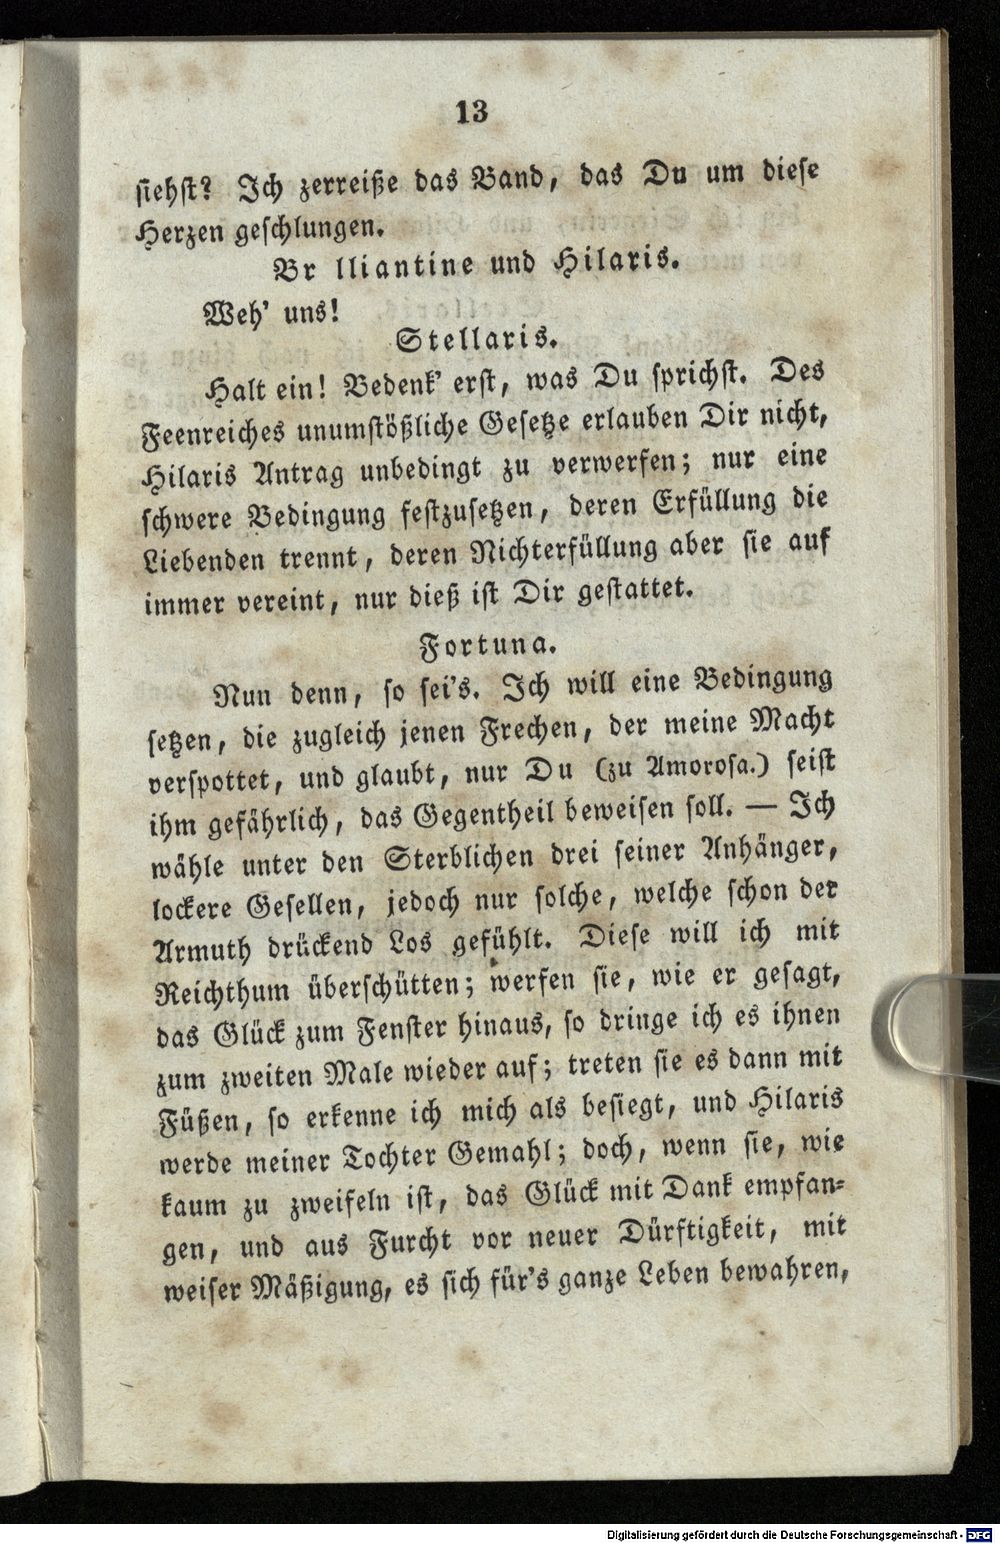 13
siehst? Ich zerreiße das Band, das Du um diese
Herzen geschlungen.
Br lliantine und Hilaris.
Weh' uns!
Stellaris.
Halt ein! Bedenk' erst, was Du sprichst. Des
Feenreiches unumstößliche Gesetze erlauben Dir nicht,
Hilaris Antrag unbedingt zu verwerfen; nur eine
schwere Bedingung festzusetzen, deren Erfüllung die
Liebenden trennt, deren Nichterfüllung aber sie auf
immer vereint, nur dieß ist Dir gestattet.
Fortuna.
Nun denn, so sei's. Ich will eine Bedingung
setzen, die zugleich jenen Frechen, der meine Macht
verspottet, und glaubt, nur Du (zu Amorosa.) seist
ihm gefährlich, das Gegentheil beweisen soll. — Ich
wähle unter den Sterblichen drei seiner Anhänger,
lockere Gesellen, jedoch nur solche, welche schon der
Armuth drückend Los gefühlt. Diese will ich mit
Reichthum überschütten; werfen sie, wie er gesagt,
das Glück zum Fenster hinaus, so dringe ich es ihnen
zum zweiten Male wieder auf; treten sie es dann mit
Füßen, so erkenne ich mich als besiegt, und Hilaris
werde meiner Tochter Gemahl; doch, wenn sie, wie
kaum zu zweifeln ist, das Glück mit Dank empfan-
gen, und aus Furcht vor neuer Dürftigkeit, mit
weiser Mäßigung, es sich für's ganze Leben bewahren,
Digitalisierung gefördert durch die Deutsche Forschungsgemeinschaft - DFG